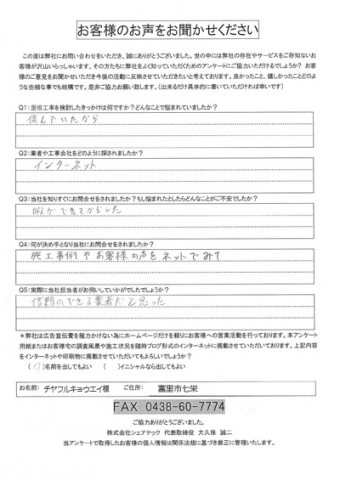 お客様のお声をお聞かせください
この度は弊社にお問い合わせをいただき、誠にありがとうございました。世の中には弊社の存在やサービスをご存知ないお
客様が沢山いらっしゃいます。その方たちに弊社をよく知っていただくためのアンケートにご協力いただけるでしょうか？お客
様のご意見をお聞かせいただき今後の活動に反映させていただきたいと考えております。良かったこと、嬉しかったことどのよ
うな些細な事でも結構です。是非ご協力お願い致します。（出来るだけ具体的に書いていただければ幸いです）
Q1：塗装工事を検討したきっかけは何ですか？どんなことで悩まれていましたか？
傷んでいたから
Q2：業者や工事会社をどのように探されましたか？
インターネット
Q3：当社を知りすぐにお問合せをされましたか？もし悩まれたとしたらどんなことがご不安でしたか？
Q4：何が決め手となり当社にお問合せをされましたか？
施工事例やお客様の声をネットでみて
Q5：実際に当社担当者がお伺いしていかがでしたでしょうか？
信頼のできる業者だと思った
＊弊社は広告宣伝費を極力かけない為にホームページだけを頼りにお客様への営業活動を行っております。本アンケート
用紙またはお客様宅の調査風景や施工状況を随時ブログ形式のインターネットに掲載させていただいております。上記内容
をインターネットや印刷物に掲載させていただいてもよろしいでしょうか？
（○）名前を出してもよい　（　）イニシャルなら出してもよい
お名前：チヤフルキョウエイ様　ご住所：富里市七栄
FAX 0438-60-7774
ご協力ありがとうございました。
株式会社シェアテック　代表取締役　大久保　誠二
当アンケートで取得したお客様の個人情報は関係法規に基づき厳正に管理いたします。